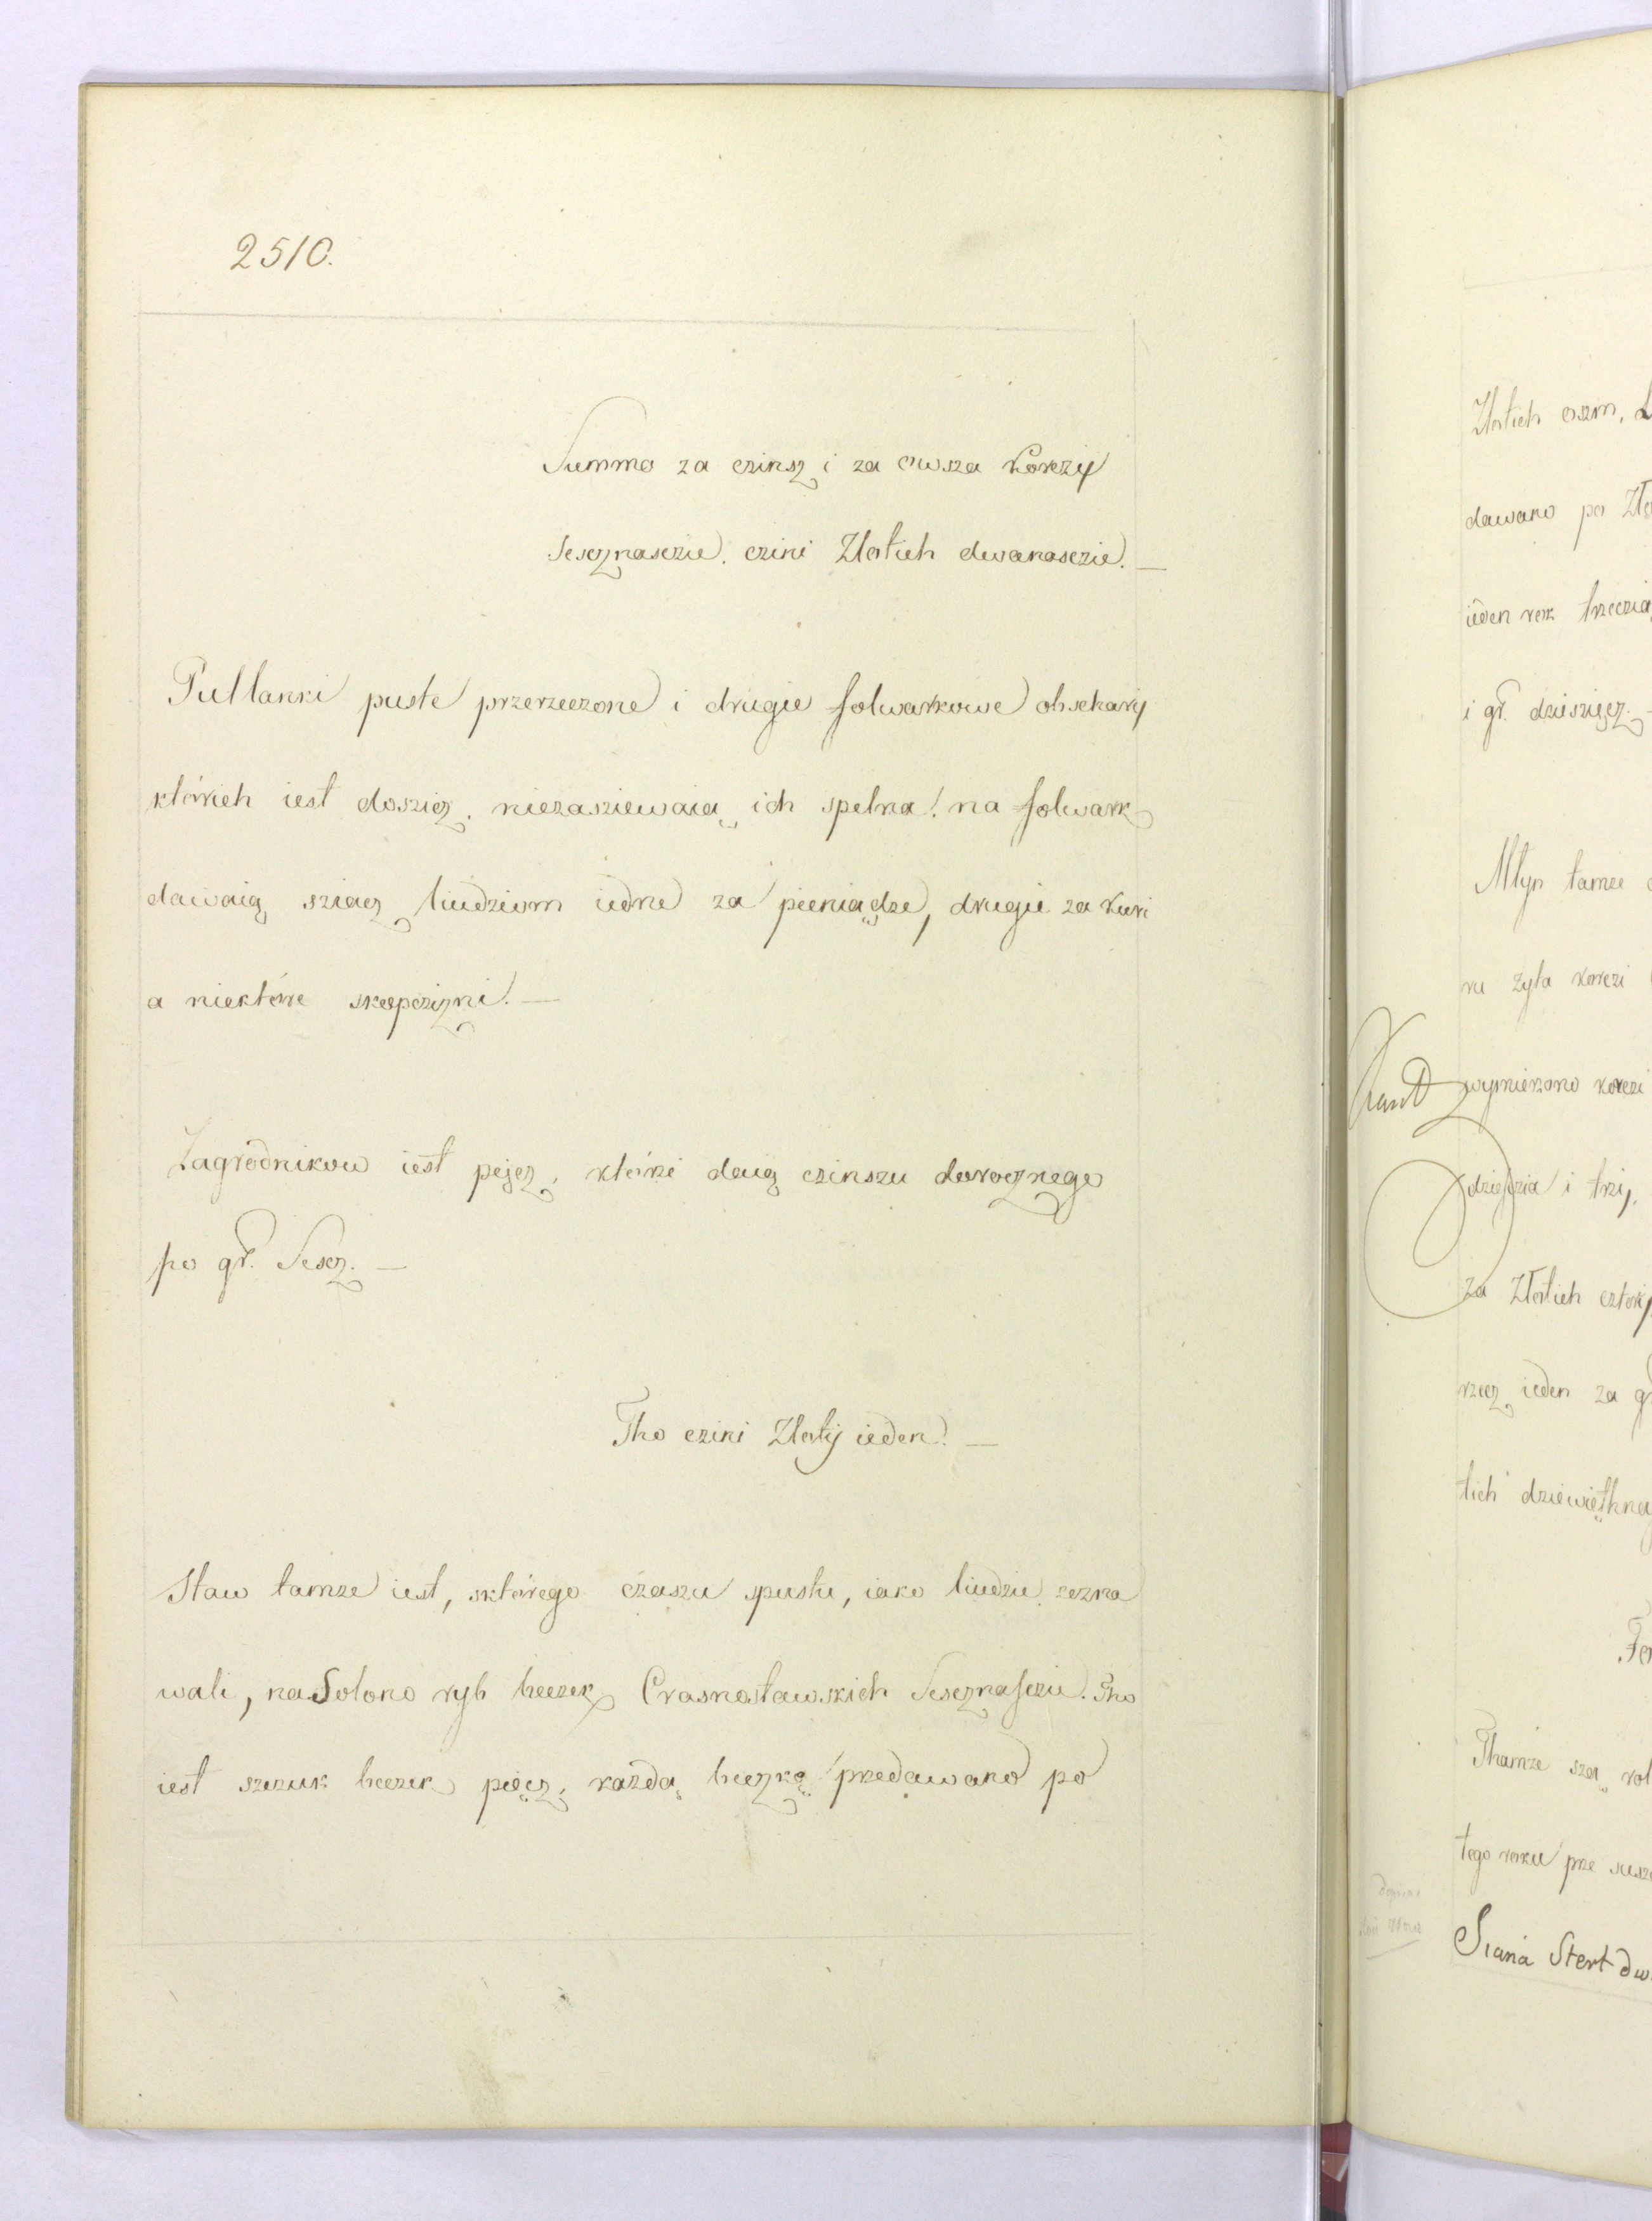 2510.
Summa za czinsz i za owsza korczy
Sescznasczie. czini Złotich dwanasczie. —
Pułłanki puste przerzeczone i drugie folwarkowe obschary
których iest doszicz, niezasziewaią ich spełna. na folwark
dawaią sziacz liudziom iedne za pieniądze, drugie za kuri
a niektóre skopczizni. —
Zagrodnikow iest pięcz, którzi daią czinszu dorocznego
po gr. Sescz. —
Tho czini Złoty ieden. —
Staw tamze iest, sktórego czaszu spustu, iako liudzie zezna
wali, naSolono ryb beczek Crasnostawskich Sescznasczie. Tho
iest szczuk beczek pięcz, każdą beczkę przedawano po
Złotich oszm,
dawano po
ieden rok trzeczią
i gr. dzieszięcz. —
Młyn tamże
ru żyta korczi
wymierzono korczi
i trzy,
za Złotich
rzecz ieden za
tich
Thamże szą
tego roku prze
Siana Stert